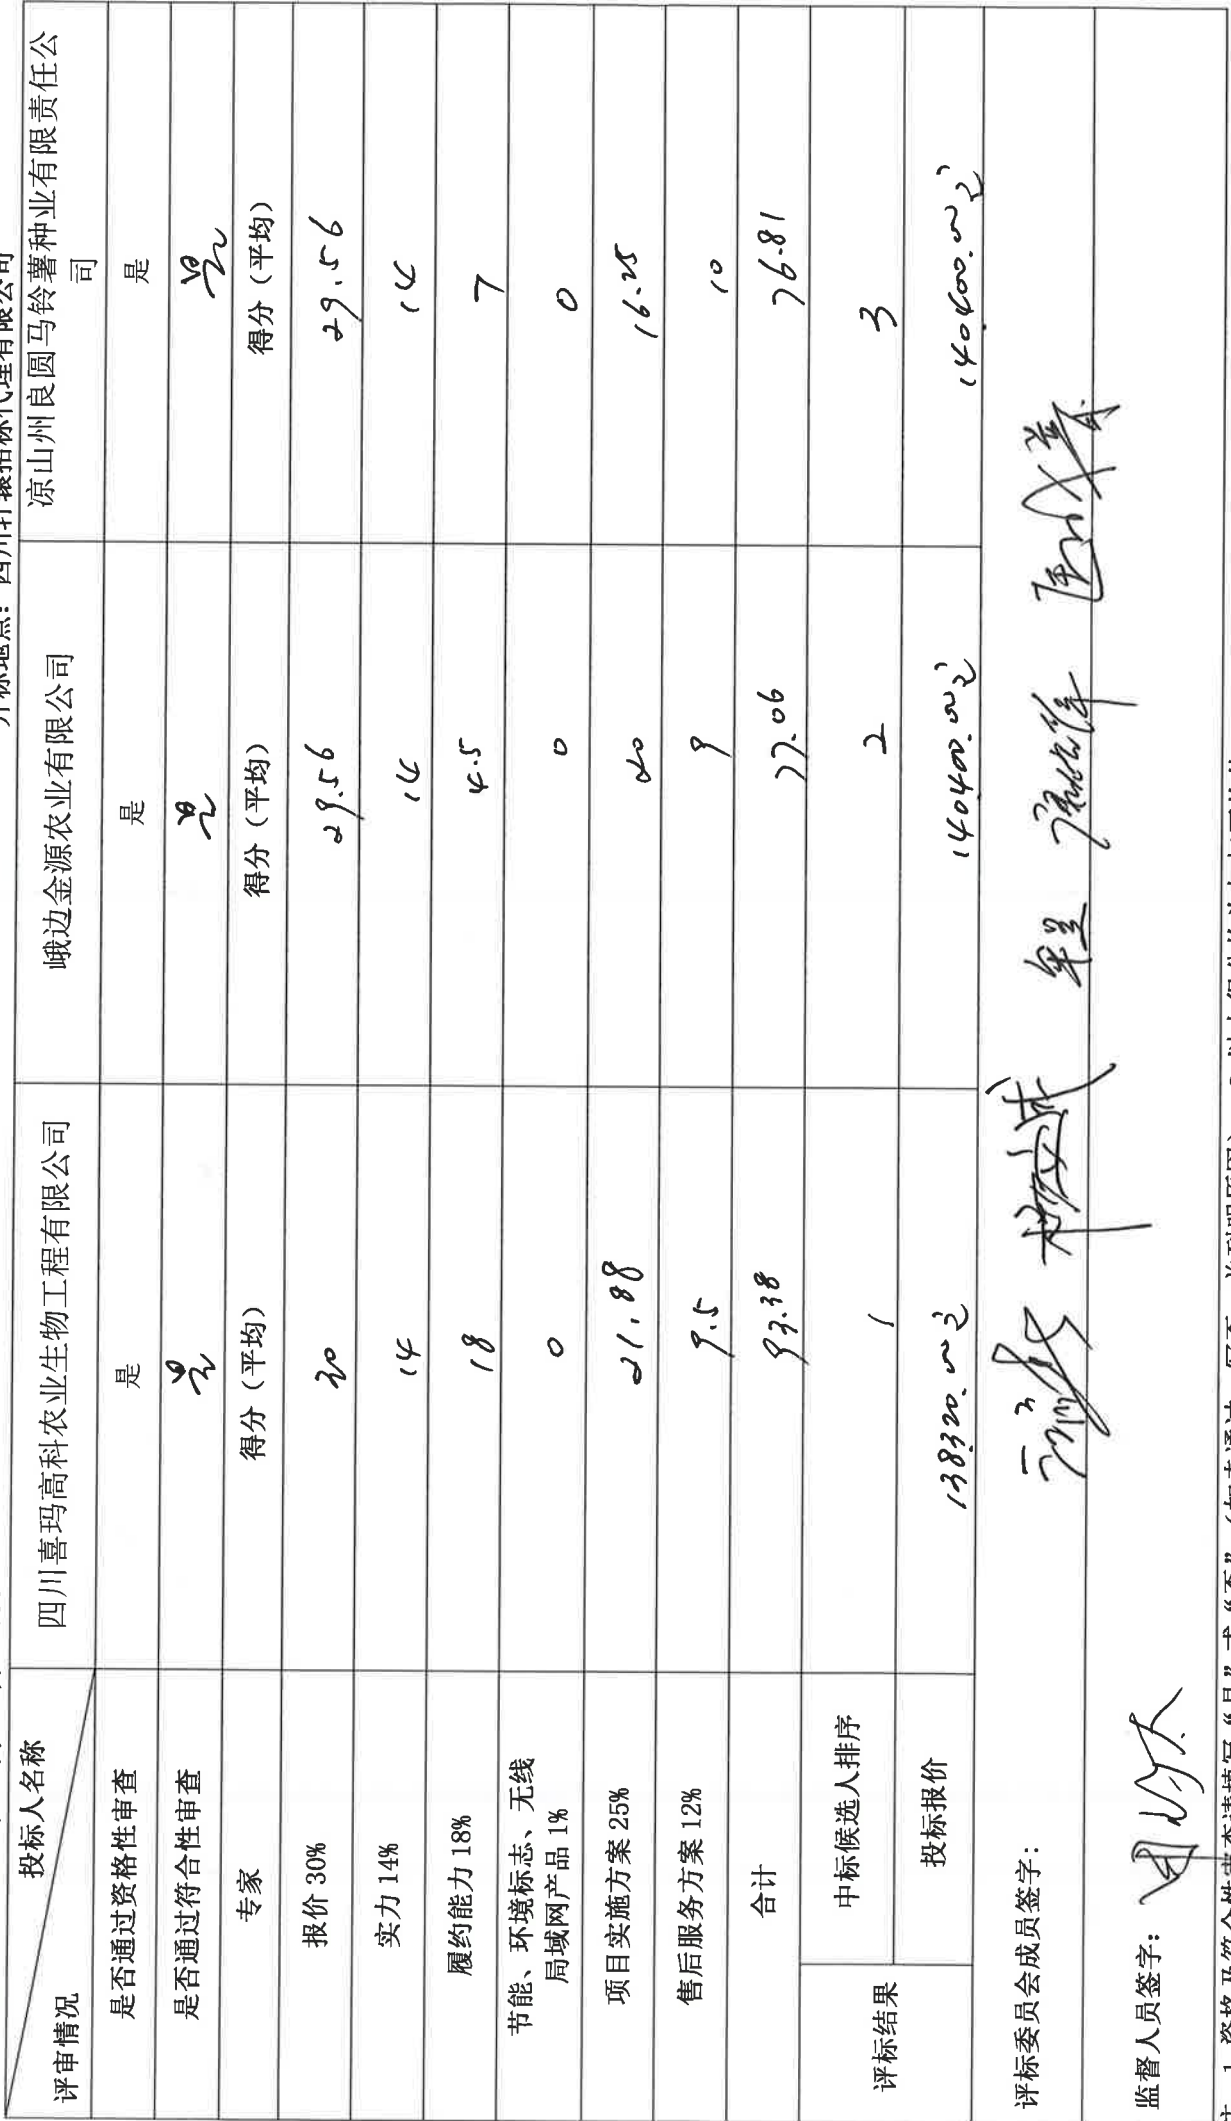 开标地点：四川轩辕招标代理有限公司
评审情况 投标人名称 四川喜玛高科农业生物工程有限公司 峨边金源农业有限公司 凉山州良圆马铃薯种业有限责任公
司
是否通过资格性审查 是 是 是
是否通过符合性审查 是 是 是
专家 得分（平均） 得分（平均） 得分（平均）
报价 30% 30 29.56 29.56
实力 14% 14 14 14
履约能力 18% 18 4.5 7
节能、环境标志、无线
局域网产品 1% 0 0 0
项目实施方案 25% 21.88 20 16.25
售后服务方案 12% 9.5 9 10
合计 93.38 77.06 76.81
评标结果 中标候选人排序 1 2 3
投标报价 138320.00元 140400.00元 140400.00元
评标委员会成员签字：
监督人员签字：